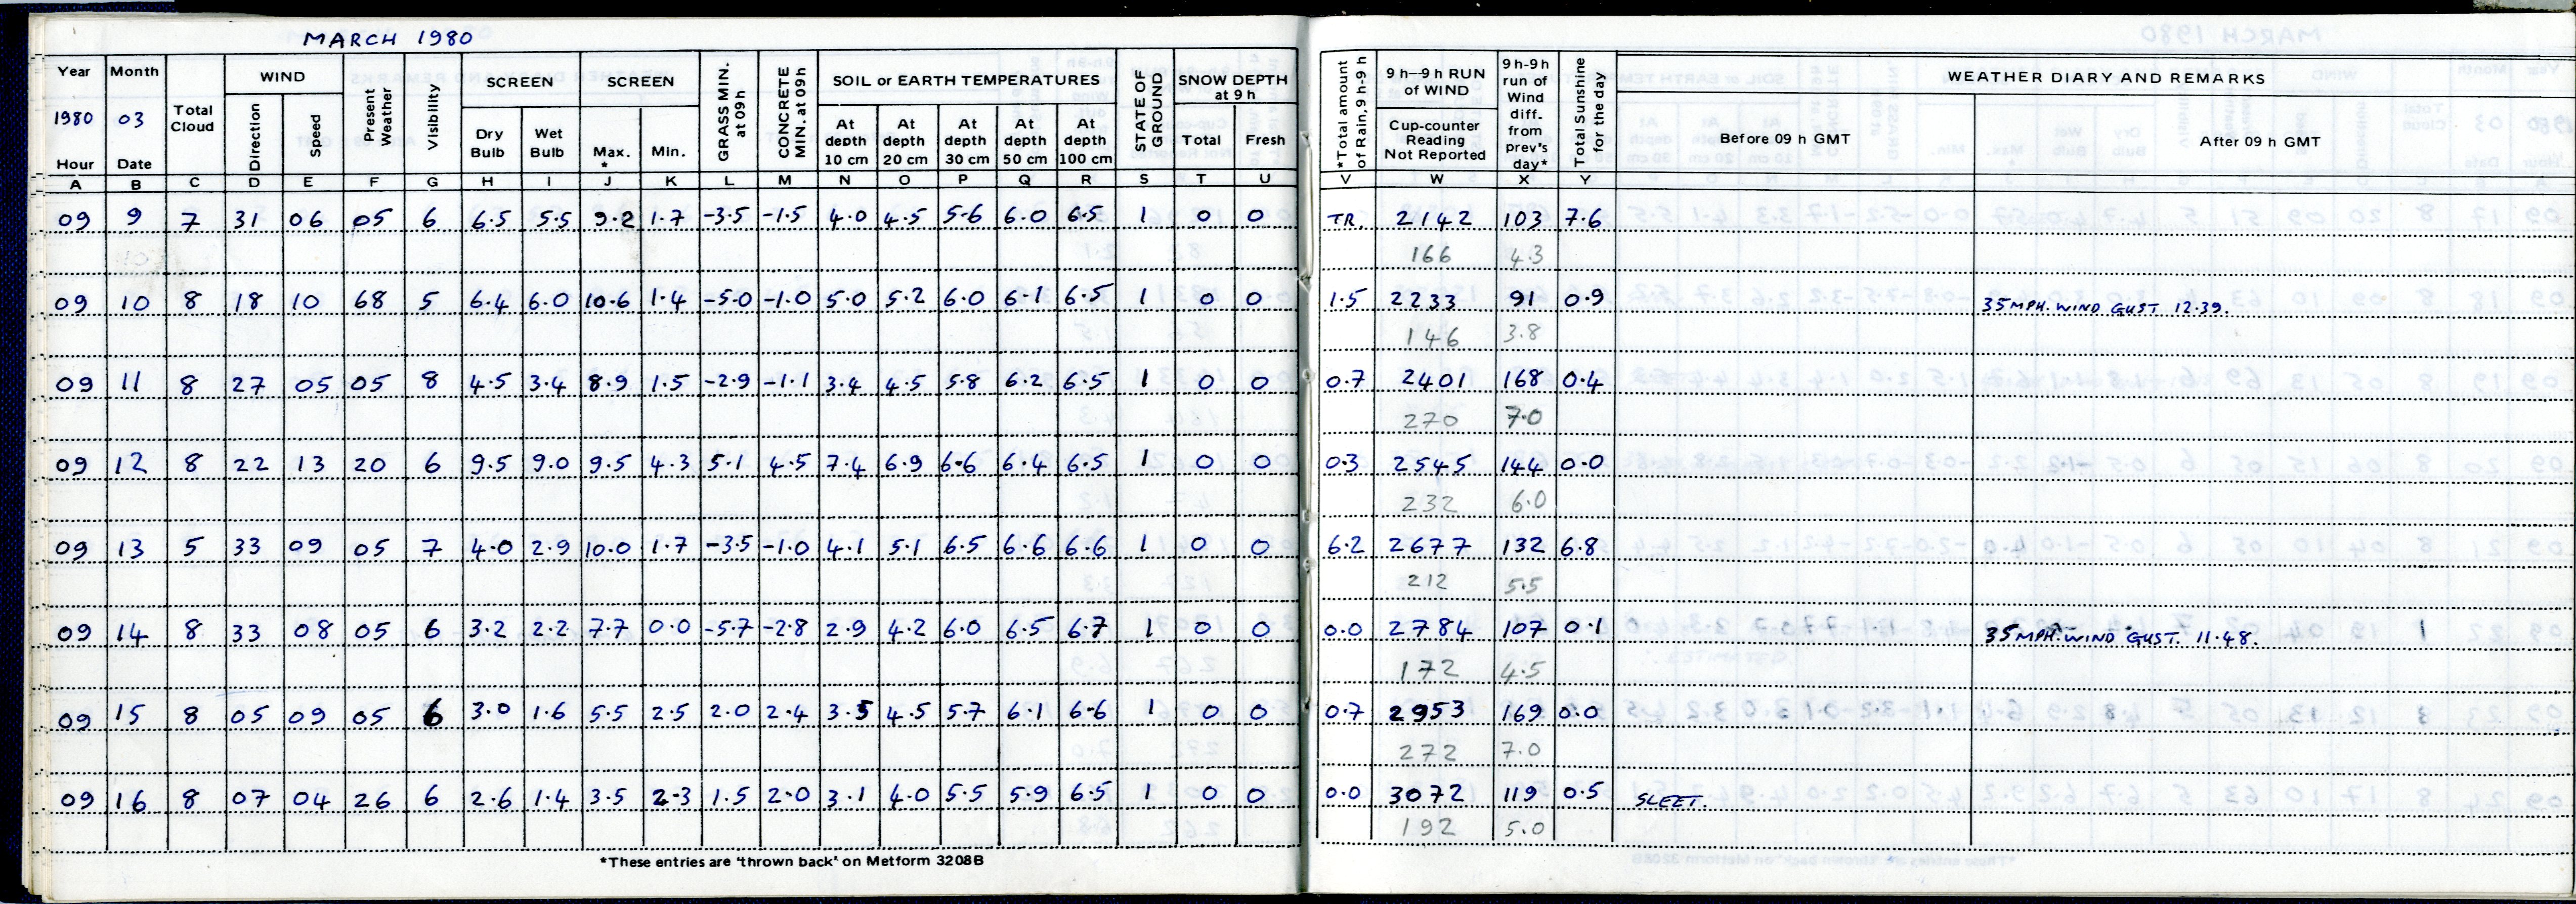 MARCH 1980
Year Month Total Cloud WIND Present Weather Visibility SCREEN SCREEN GRASS MIN. at 09h CONCRETE MIN. at 09h SOIL or EARTH TEMPERATURES STATE OF GROUND SNOW DEPTH at 9 h *Total amount of Rain, 9h-9h 9 h--9 h RUN of WIND 9 h-9h run of Wind diff. from prev's day* Total Sunshine for the day WEATHER DIARY AND REMARKS
1980 03 Direction Speed Dry Bulb Wet Bulb Max. * Min. At depth 10 cm At depth 20 cm At depth 30 cm At depth 50 cm At depth 100 cm Total Fresh Cup-counter Reading Not Reported Before 09 h GMT After 09 h GMT
Hour Date
A B C D E F G H I J K L M N O P Q R S T U V W X Y
09 9 7 31 06 05 6 6.5 5.5 9.2 1.7 -3.5 -1.5 4.0 4.5 5.6 6.0 6.5 1 0 0 TR. 2142 103 7.6
166 4.3
09 10 8 18 10 68 5 6.4 6.0 10.6 1.4 -5.0 -1.0 5.0 5.2 6.0 6.1 6.5 1 0 0 1.5 2233 91 0.9 35 MPH. WIND GUST 12.39.
146 3.8
09 11 8 27 05 05 8 4.5 3.4 8.9 1.5 -2.9 -1.1 3.4 4.5 5.8 6.2 6.5 1 0 0 0.7 2401 168 0.4
270 7.0
09 12 8 22 13 20 6 9.5 9.0 9.5 4.3 5.1 4.5 7.4 6.9 6.6 6.4 6.5 1 0 0 0.3 2545 144 0.0
232 6.0
09 13 5 33 09 05 7 4.0 2.9 10.0 1.7 -3.5 -1.0 4.1 5.1 6.5 6.6 6.6 1 0 0 6.2 2677 132 6.8
212 5.5
09 14 8 33 08 05 6 3.2 2.2 7.7 0.0 -5.7 -2.8 2.9 4.2 6.0 6.5 6.7 1 0 0 0.0 2784 107 0.1 35 MPH. WIND GUST. 11.48.
172 4.5
09 15 8 05 09 05 6 3.0 1.6 5.5 2.5 2.0 2.4 3.5 4.5 5.7 6.1 6.6 1 0 0 0.7 2953 169 0.0
272 7.0
09 16 8 07 04 26 6 2.6 1.4 3.5 2.3 1.5 2.0 3.1 4.0 5.5 5.9 6.5 1 0 0 0.0 3072 119 0.5 SLEET.
192 5.0
*These entries are 'thrown back' on Metform 3208B